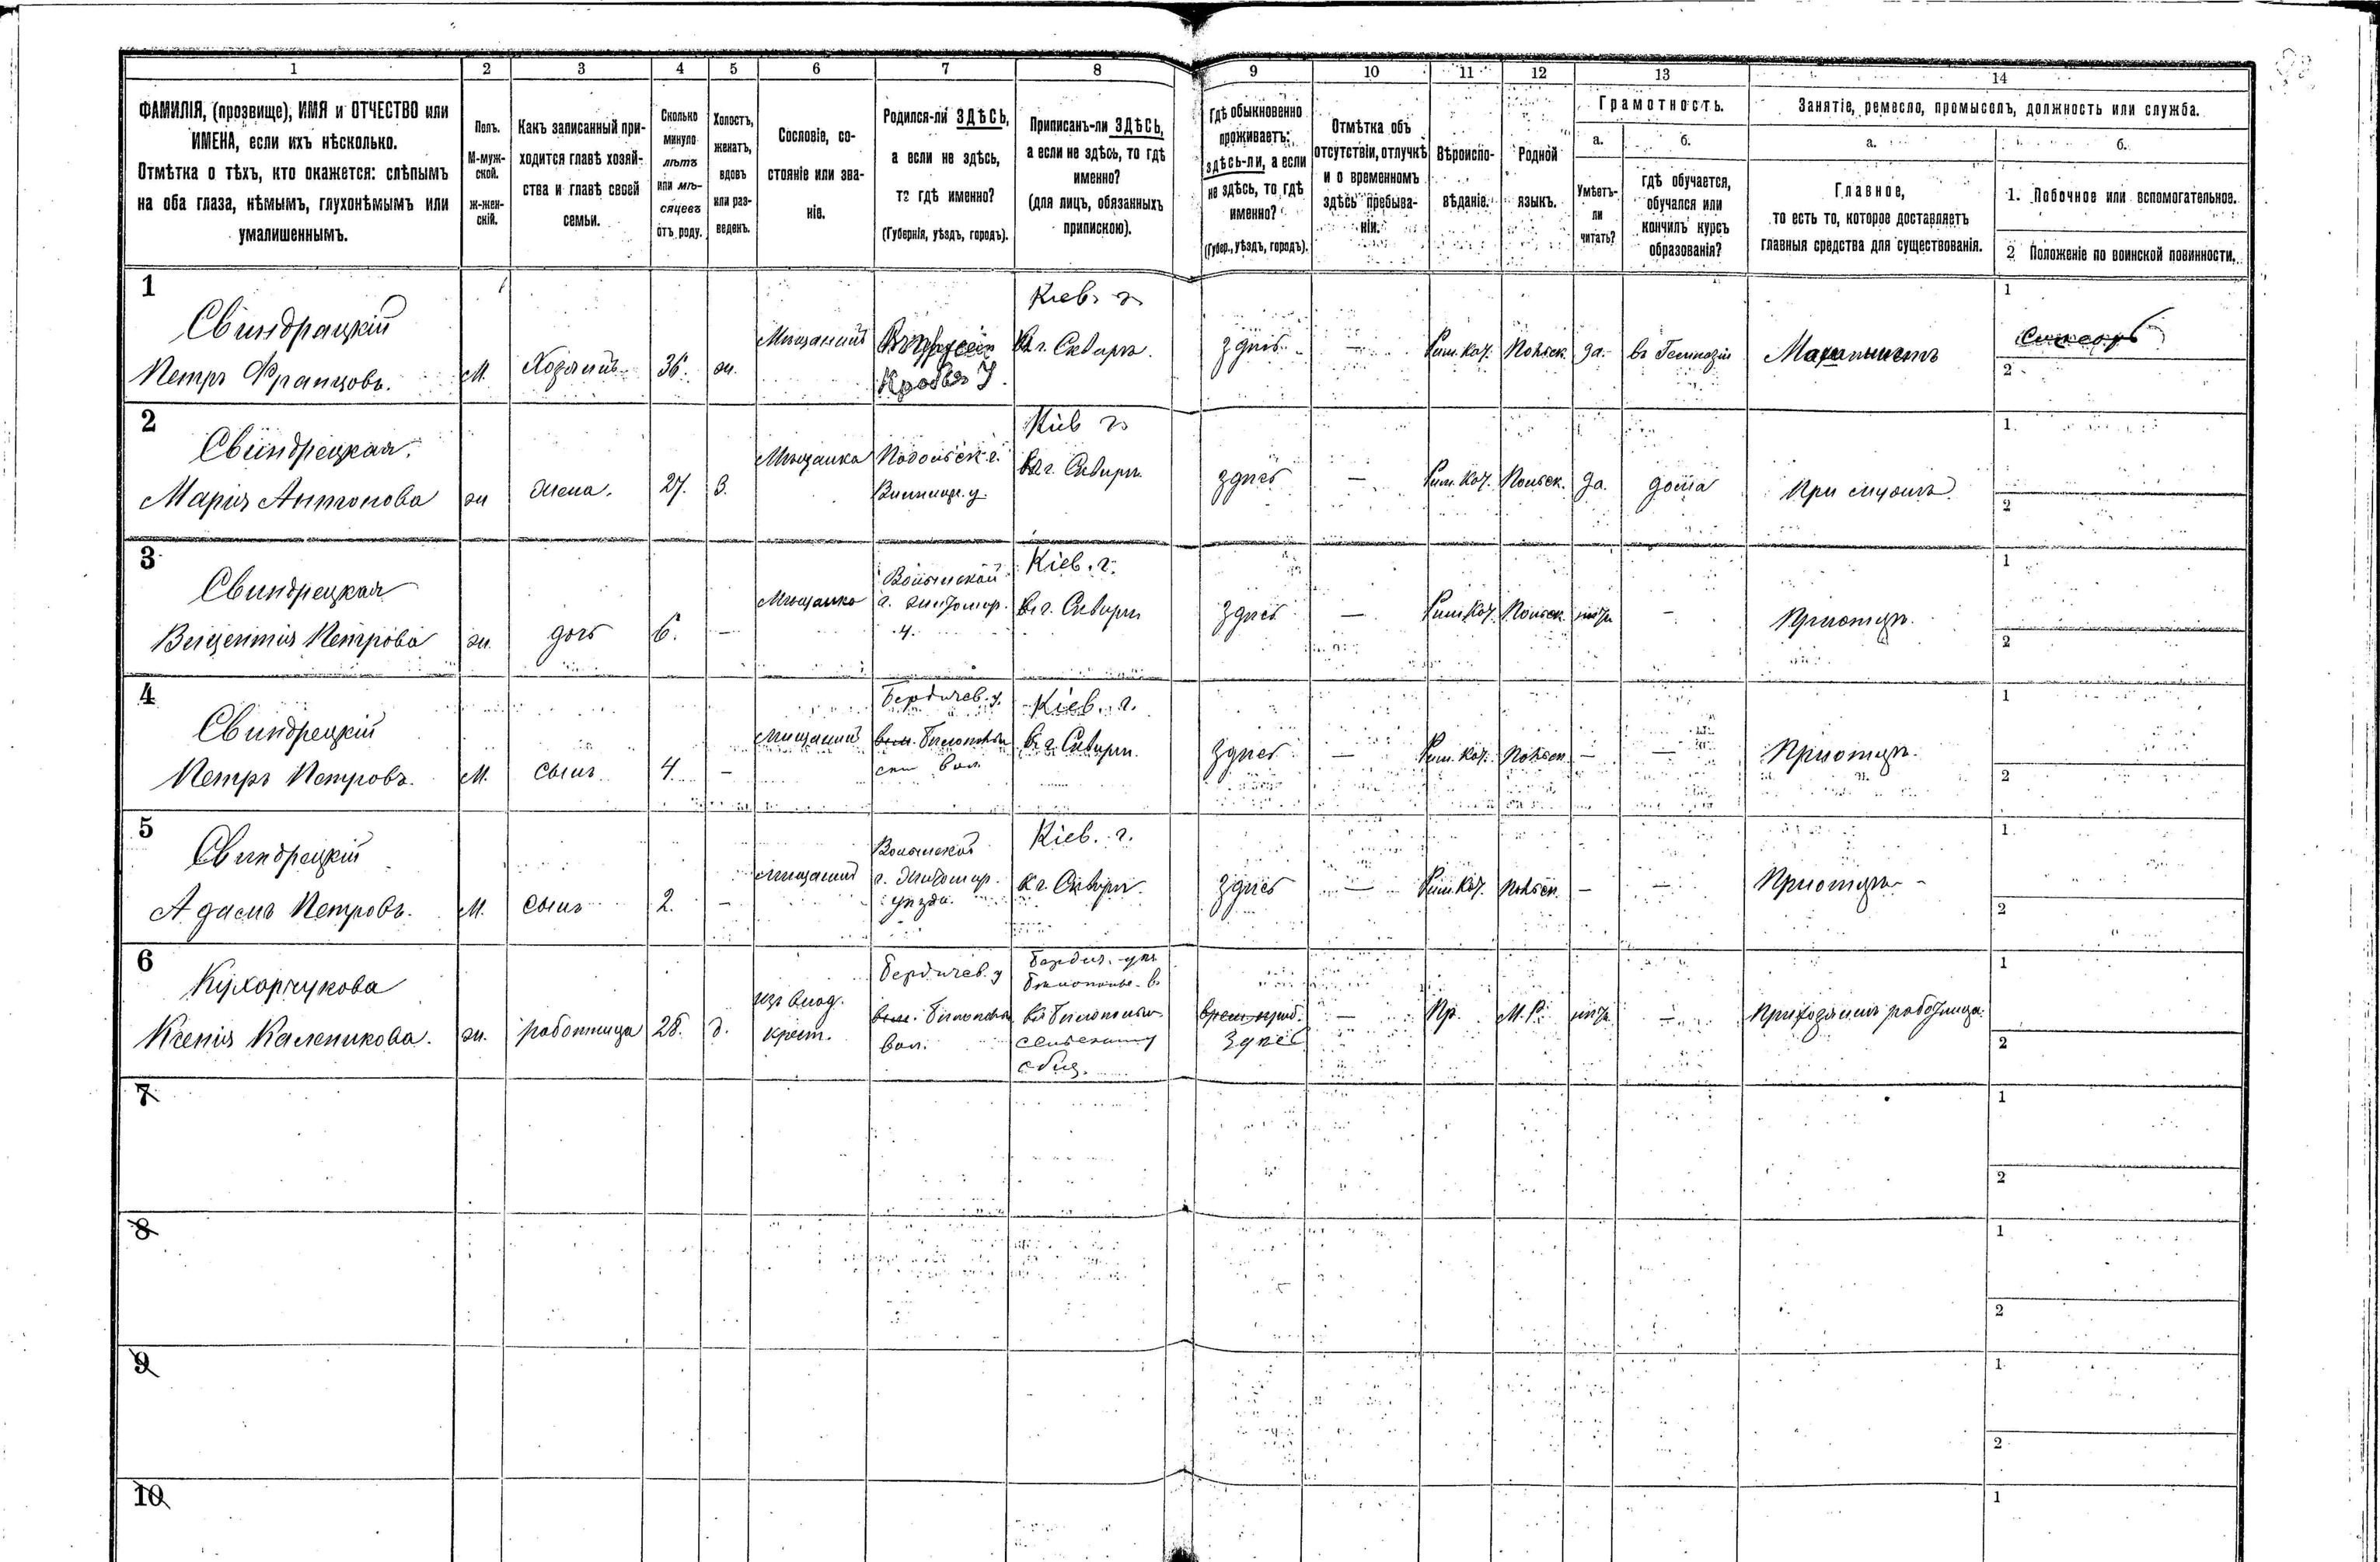 1 2 3 4 5 6 7 8 9 10 11 12 13 14
ФАМИЛІЯ, (прозвище), ИМЯ и ОТЧЕСТВО или
ИМЕНА, если ихъ нѣсколько.
Отмѣтка о тѣхъ, кто окажется: слѣпымъ
на оба глаза, нѣмымъ, глухонѣмымъ или
умалишеннымъ.
Полъ.
М-муж-
ской.
ж-жен-
скій.
Какъ записанный при-
ходится главѣ хозяй-
ства и главѣ своей
семьи.
Сколько
минуло
лѣтъ
или мѣ-
сяцевъ
отъ роду.
Холостъ,
женатъ,
вдовъ
или раз-
веденъ.
Сословіе, со-
стояніе или зва-
ніе.
Родился-ли ЗДѢСЬ,
а если не здѣсь,
то гдѣ именно?
(Губернія, уѣздъ, городъ).
Приписанъ-ли ЗДѢСЬ,
а если не здѣсь, то гдѣ
именно?
(для лицъ, обязанныхъ
припискою).
Гдѣ обыкновенно
проживаетъ:
здѣсь-ли, а если
не здѣсь, то гдѣ
именно?
(Губер., уѣздъ, городъ).
Отмѣтка объ
отсутствіи, отлучкѣ
и о временномъ
здѣсь пребыва-
ніи.
Вѣроиспо-
вѣданіе.
Родной
языкъ.
Грамотность.
а.
Умѣетъ-
ли
читать?
б.
гдѣ обучается,
обучался или
кончилъ курсъ
образованія?
Занятіе, ремесло, промыселъ, должность или служба.
а.
Главное,
то есть то, которое доставляетъ
главныя средства для существованія.
б.
1. Побочное или вспомогательное.
2 Положеніе по воинской повинности.
1
Свиндрацкій
Петръ Францовъ.
М.
Хозяинъ
36.
ж.
Мѣщанинъ
Кіев. г.
г. Сквирѣ.
здѣсь
—
Рим. Кат.
Польск.
да.
въ Гимназіи
Машинистъ
1
2
2
Свиндрецкая.
Марія Антонова
ж
жена.
27.
З.
Мѣщанка
Подольск. г.
Винниц. у.
Кіев г.
г. Сквирѣ
здѣсь
—
Рим. Кат.
Польск.
да.
дома
При мужѣ
1
2
3
Свиндрецкая
Вицентія Петрова
ж.
дочь
6.
—
Мѣщанка
Волынской
г. Житомир.
у.
Кіев. г.
г. Сквирѣ
здѣсь
—
Рим. Кат.
Польск.
нѣтъ
—
При отцѣ
1
2
4
Свиндрецкій
Петръ Петровъ.
М.
сынъ
4.
—
мѣщанинъ
Бердичев. у.
вол.
Кіев. г.
г. Сквирѣ.
здѣсь
—
Рим. Кат.
Польск.
—
—
При отцѣ.
1
2
5
Свиндрецкій
Адамъ Петровъ.
М.
сынъ
2.
—
мѣщанинъ
Волынской
г. Житомир.
уѣзда.
Кіев. г.
г. Сквирѣ.
здѣсь
—
Рим. Кат.
Польск.
—
—
При отцѣ
1
2
6
Кухарчукова
Ксенія Каленикова.
ж.
работница
28.
д.
изъ влад.
крест.
Бердичев. у
вол.
Бердич. у
общ.
здѣсь
—
Пр.
М. Р.
нѣтъ
—
При хозяинѣ работница
1
2
7
1
2
8
1
2
9
1
2
10
1